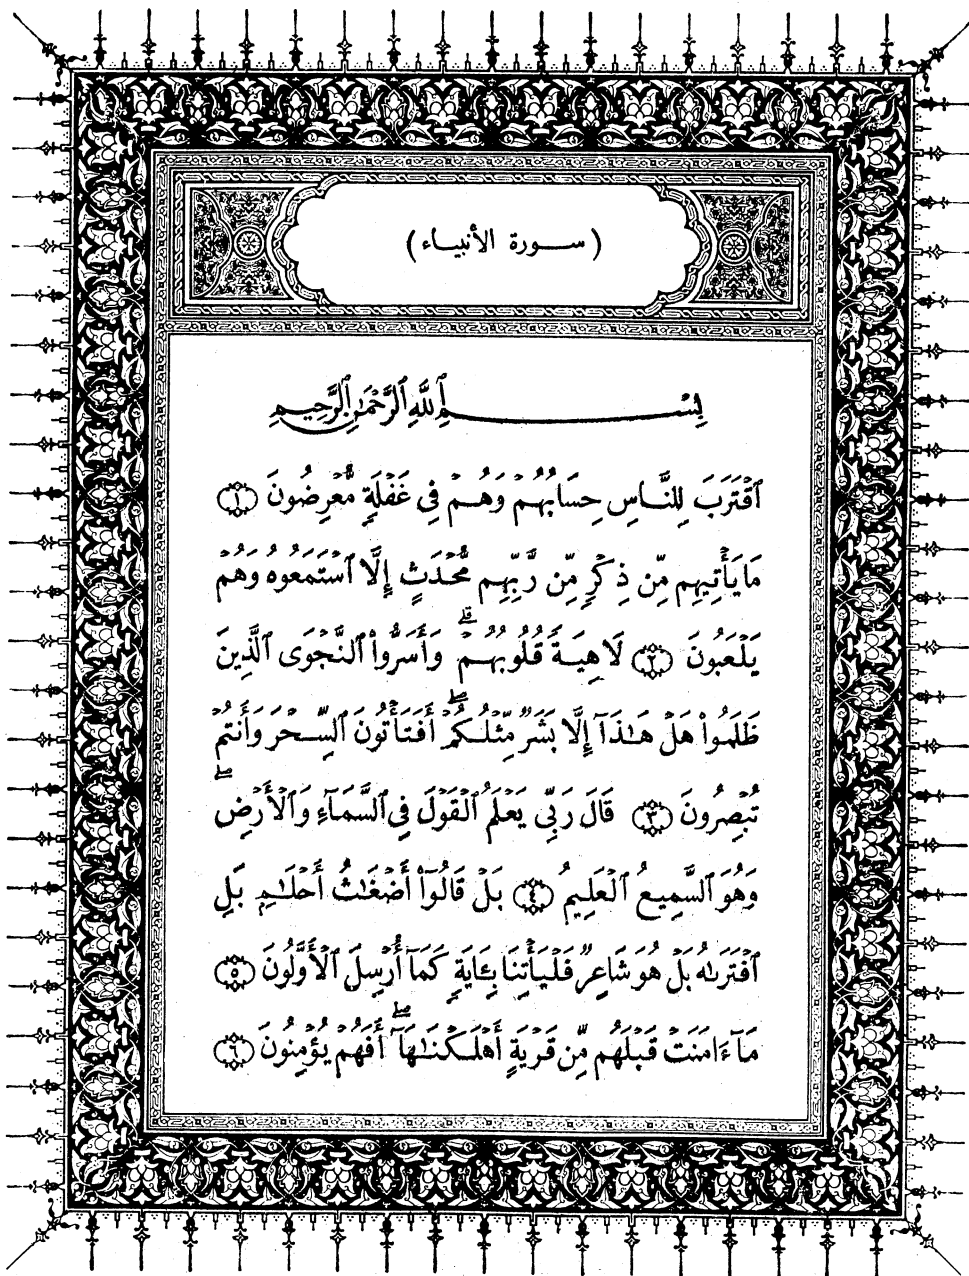 ( سورة الأنبياء )
بِسْمِ ٱللَّهِ ٱلرَّحْمَٰنِ ٱلرَّحِيمِ
ٱقْتَرَبَ لِلنَّاسِ حِسَابُهُمْ وَهُمْ فِي غَفْلَةٍ مُّعْرِضُونَ ﴿١﴾
مَا يَأْتِيهِم مِّن ذِكْرٍ مِّن رَّبِّهِم مُّحْدَثٍ إِلَّا ٱسْتَمَعُوهُ وَهُمْ
يَلْعَبُونَ ﴿٢﴾ لَاهِيَةً قُلُوبُهُمْ ۗ وَأَسَرُّوا۟ ٱلنَّجْوَى ٱلَّذِينَ
ظَلَمُوا۟ هَلْ هَـٰذَآ إِلَّا بَشَرٌ مِّثْلُكُمْ ۖ أَفَتَأْتُونَ ٱلسِّحْرَ وَأَنتُمْ
تُبْصِرُونَ ﴿٣﴾ قَالَ رَبِّى يَعْلَمُ ٱلْقَوْلَ فِى ٱلسَّمَآءِ وَٱلْأَرْضِ ۖ
وَهُوَ ٱلسَّمِيعُ ٱلْعَلِيمُ ﴿٤﴾ بَلْ قَالُوٓا۟ أَضْغَـٰثُ أَحْلَـٰمٍ بَلِ
ٱفْتَرَىٰهُ بَلْ هُوَ شَاعِرٌ فَلْيَأْتِنَا بِـَٔايَةٍ كَمَآ أُرْسِلَ ٱلْأَوَّلُونَ ﴿٥﴾
مَآ ءَامَنَتْ قَبْلَهُم مِّن قَرْيَةٍ أَهْلَكْنَـٰهَآ ۖ أَفَهُمْ يُؤْمِنُونَ ﴿٦﴾